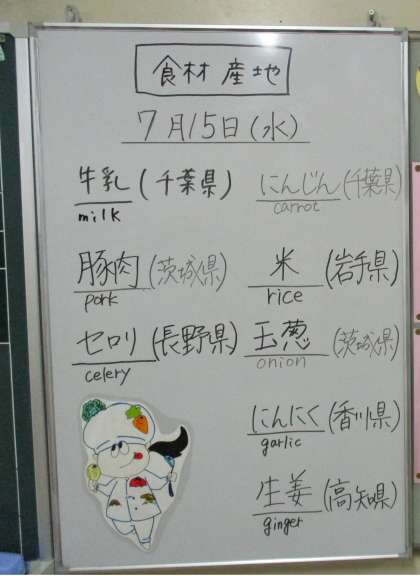 食材産地
7月15日(水)
牛乳(千葉県)
milk
にんじん(千葉県)
carrot
豚肉(茨城県)
pork
米(岩手県)
rice
セロリ(長野県)
celery
玉葱(茨城県)
onion
にんにく(香川県)
garlic
生姜(高知県)
ginger